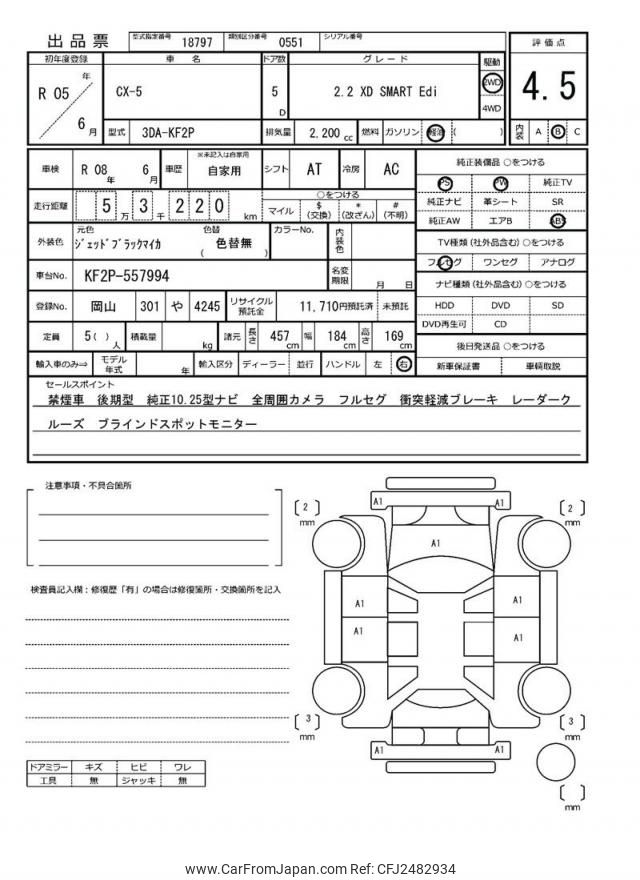 出品票 型式指定番号 18797 類別区分番号 0551 シリアル番号
評価点
4.5
内装 A B C
初年度登録 車名 ドア数 グレード 駆動
R 05 年 6 月 CX-5 5 D 2.2 XD SMART Edi 2WD 4WD
型式 3DA-KF2P 排気量 2,200 cc 燃料 ガソリン 軽油 ( )
車検 R 08 年 6 月 車歴 ※未記入は自家用 自家用 シフト AT 冷房 AC
走行距離 5 万 3 千 2 2 0 km ○をつける
マイル $ (交換) * (改ざん) # (不明)
外装色 元色 ジェットブラックマイカ 色替 ( 色替無 ) カラーNo. 内装色
車台No. KF2P-557994 名変期限 月 日
登録No. 岡山 301 や 4245 リサイクル預託金 11,710円預託済 未預託
定員 5( ) 人 積載量 kg 諸元 長さ 457 cm 幅 184 cm 高さ 169 cm
輸入車のみ⇒ モデル年式 年 輸入区分 ディーラー 並行 ハンドル 左 右
純正装備品 ○をつける
PS PW 純正TV
純正ナビ 革シート SR
純正AW エアB ABS
TV種類(社外品含む)○をつける
フルセグ ワンセグ アナログ
ナビ種類(社外品含む)○をつける
HDD DVD SD
DVD再生可 CD
後日発送品 ○をつける
新車保証書 車輌取説
セールスポイント
禁煙車 後期型 純正10.25型ナビ 全周囲カメラ フルセグ 衝突軽減ブレーキ レーダーク
ルーズ ブラインドスポットモニター
注意事項・不具合箇所
検査員記入欄：修復歴「有」の場合は修復箇所・交換箇所を記入
ドアミラー キズ ヒビ ワレ
工具 無 ジャッキ 無
[ 2 ] mm
A1 A1
[ 2 ] mm
A1
A1 A1
A1 A1
[ 3 ] mm
[ 3 ] mm
A1 A1
[ ] mm
www.CarFromJapan.com Ref: CFJ2482934